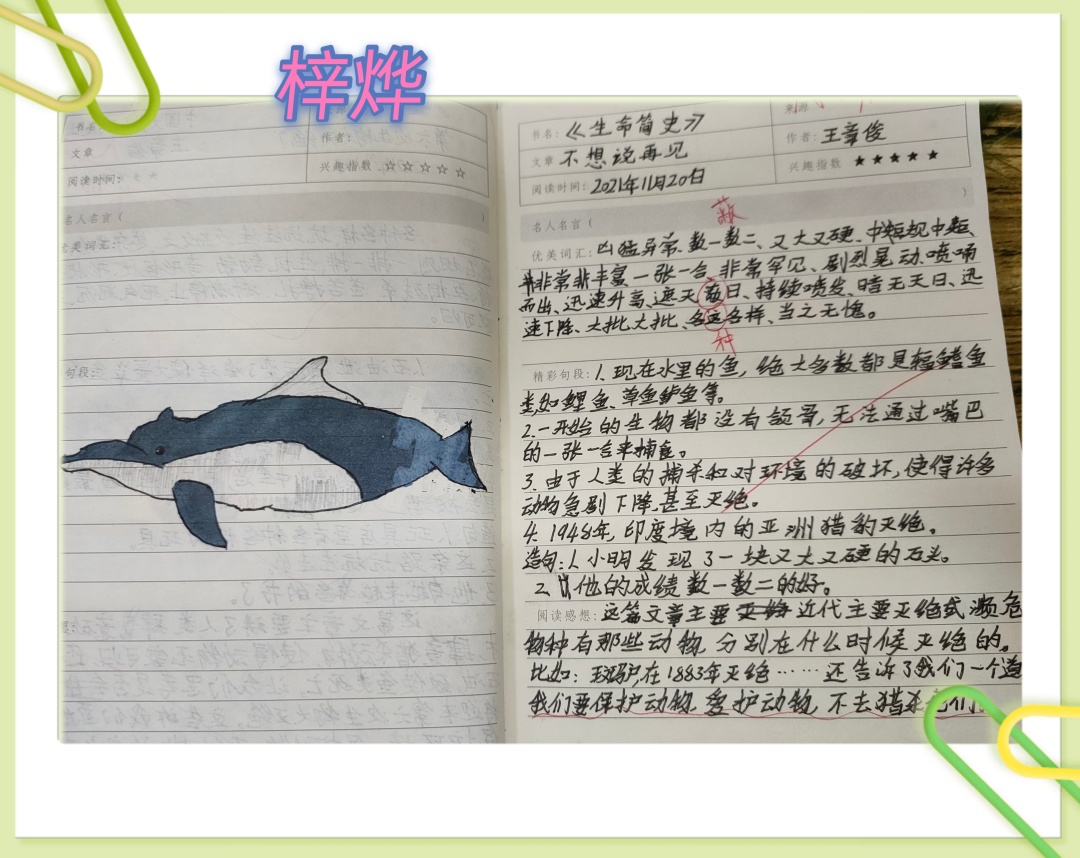 梓烨
书名:
作者:
文章
兴趣指数 ☆☆☆☆☆
阅读时间:
名人名言(
)
优美词汇:
句段:
来源
书名: 《生命简史》
作者: 王章俊
文章 不想说再见
兴趣指数 ★★★★★
阅读时间: 2021年11月20日
名人名言(
)
蔽
优美词汇: 凶猛异常、数一数二、又大又硬、中短规中短、
非常非丰富、一张一合、非常罕见、剧烈晃动、喷涌
而出、迅速升高、遮天 日、持续喷发、暗无天日、迅
速下降、大批大批、各 各样、当之无愧。
种
精彩句段: 1.现在水里的鱼,绝大多数都是辐鳍鱼
类,如鲤鱼、草鱼鲈鱼等。
2.一开始的生物都没有颌骨,无法通过嘴巴
的一张一合来捕食。
3.由于人类的捕杀和对环境的破坏,使得许多
动物急剧下降,甚至灭绝。
4.1948年,印度境内的亚洲猎豹灭绝。
造句:1.小明发现了一块又大又硬的石头。
2.他的成绩数一数二的好。
阅读感想: 这篇文章主要 近代主要灭绝或濒危
物种有那些动物,分别在什么时候灭绝的。
比如:斑驴,在1883年灭绝……还告诉了我们一个道
我们要保护动物,爱护动物,不去猎杀他们。